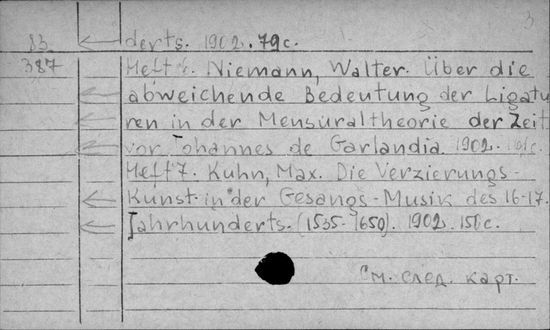 3
83 derts. 1902. 79 с.
387 Heft 6. Niemann, Walter. Über die
abweichende Bedeutung der Ligatu-
ren in der Mensuraltheorie der Zeit
vor Johannes de Garlandia. 1902.
Heft 7. Kuhn, Max. Die Verzierungs-
Kunst in der Gesangs-Musik des 16-17.
Jahrhunderts. (1535-1650). 1902. 150 с.
См. след. карт.